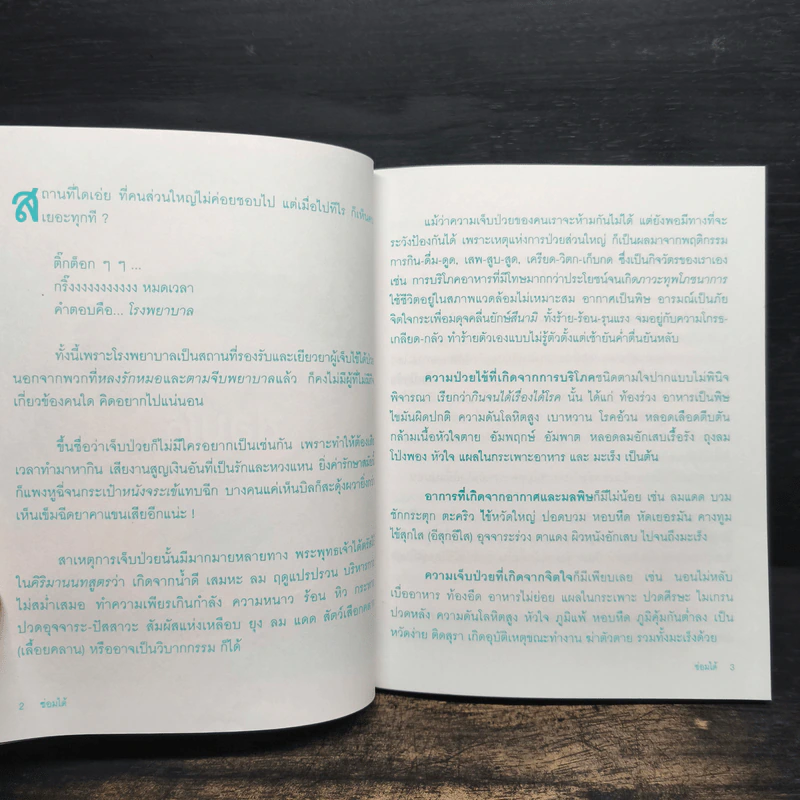 สถานที่ใดเอ่ย ที่คนส่วนใหญ่ไม่ค่อยชอบไป แต่เมื่อไปทีไร ก็เห็นคน
เยอะทุกที ?
ติ๊กต็อก ๆ ๆ ...
กริ๊งงงงงงงงงงงง หมดเวลา
คำตอบคือ... โรงพยาบาล
ทั้งนี้เพราะโรงพยาบาลเป็นสถานที่รองรับและเยียวยาผู้เจ็บไข้ได้ป่วย
นอกจากพวกที่หลงรักหมอและตามจีบพยาบาลแล้ว ก็คงไม่มีผู้ที่ไม่มีกิจ
เกี่ยวข้องคนใด คิดอยากไปแน่นอน
ขึ้นชื่อว่าเจ็บป่วยก็ไม่มีใครอยากเป็นเช่นกัน เพราะทำให้ต้องเสีย
เวลาทำมาหากิน เสียงานสูญเงินอันที่เป็นรักและหวงแหน ยิ่งค่ารักษาสมัยนี้
ก็แพงหูฉี่จนกระเป๋าหนังจระเข้แทบฉีก บางคนแค่เห็นบิลก็สะดุ้งผวายิ่งกว่า
เห็นเข็มฉีดยาคาแขนเสียอีกแน่ะ !
สาเหตุการเจ็บป่วยนั้นมีมากมายหลายทาง พระพุทธเจ้าได้ตรัสไว้
ในคิริมานนทสูตรว่า เกิดจากน้ำดี เสมหะ ลม ฤดูแปรปรวน บริหารกาย
ไม่สม่ำเสมอ ทำความเพียรเกินกำลัง ความหนาว ร้อน หิว กระหาย
ปวดอุจจาระ-ปัสสาวะ สัมผัสแห่งเหลือบ ยุง ลม แดด สัตว์เลือกคลาน
(เลื้อยคลาน) หรืออาจเป็นวิบากกรรม ก็ได้
2 ซ่อมได้
แม้ว่าความเจ็บป่วยของคนเราจะห้ามกันไม่ได้ แต่ยังพอมีทางที่จะ
ระวังป้องกันได้ เพราะเหตุแห่งการป่วยส่วนใหญ่ ก็เป็นผลมาจากพฤติกรรม
การกิน-ดื่ม-ดูด, เสพ-สูบ-สูด, เครียด-วิตก-เก็บกด ซึ่งเป็นกิจวัตรของเราเอง
เช่น การบริโภคอาหารที่มีโทษมากกว่าประโยชน์จนเกิดภาวะทุพโภชนาการ
ใช้ชีวิตอยู่ในสภาพแวดล้อมไม่เหมาะสม อากาศเป็นพิษ อารมณ์เป็นภัย
จิตใจกระเพื่อมดุจคลื่นยักษ์สึนามิ ทั้งร้าย-ร้อน-รุนแรง จมอยู่กับความโกรธ-
เกลียด-กลัว ทำร้ายตัวเองแบบไม่รู้ตัวตั้งแต่เช้ายันค่ำตื่นยันหลับ
ความป่วยไข้ที่เกิดจากการบริโภคชนิดตามใจปากแบบไม่พินิจ
พิจารณา เรียกว่ากินจนได้เรื่องได้โรค นั้น ได้แก่ ท้องร่วง อาหารเป็นพิษ
ไขมันผิดปกติ ความดันโลหิตสูง เบาหวาน โรคอ้วน หลอดเลือดตีบตัน
กล้ามเนื้อหัวใจตาย อัมพฤกษ์ อัมพาต หลอดลมอักเสบเรื้อรัง ถุงลม
โป่งพอง หัวใจ แผลในกระเพาะอาหาร และ มะเร็ง เป็นต้น
อาการที่เกิดจากอากาศและมลพิษก็มีไม่น้อย เช่น ลมแดด บวม
ชักกระตุก ตะคริว ไข้หวัดใหญ่ ปอดบวม หอบหืด หัดเยอรมัน คางทูม
ไข้สุกใส (อีสุกอีใส) อุจจาระร่วง ตาแดง ผิวหนังอักเสบ ไปจนถึงมะเร็ง
ความเจ็บป่วยที่เกิดจากจิตใจก็มีเพียบเลย เช่น นอนไม่หลับ
เบื่ออาหาร ท้องอืด อาหารไม่ย่อย แผลในกระเพาะ ปวดศีรษะ ไมเกรน
ปวดหลัง ความดันโลหิตสูง หัวใจ ภูมิแพ้ หอบหืด ภูมิคุ้มกันต่ำลง เป็น
หวัดง่าย ติดสุรา เกิดอุบัติเหตุขณะทำงาน ฆ่าตัวตาย รวมทั้งมะเร็งด้วย
ซ่อมได้ 3